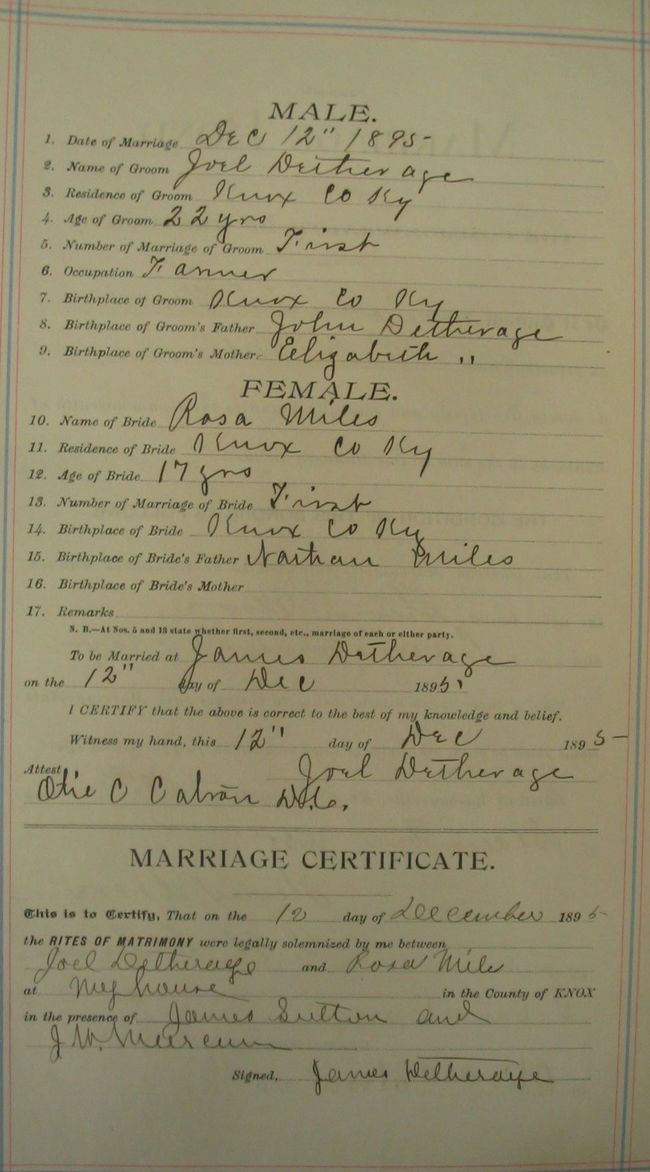 MALE.
1. Date of Marriage Dec 12" 1895
2. Name of Groom Joel Detherage
3. Residence of Groom Knox Co Ky
4. Age of Groom 22 yrs
5. Number of Marriage of Groom First
6. Occupation Farmer
7. Birthplace of Groom Knox Co Ky
8. Birthplace of Groom's Father John Detherage
9. Birthplace of Groom's Mother Elizabeth "
FEMALE.
10. Name of Bride Rosa Miles
11. Residence of Bride Knox Co Ky
12. Age of Bride 17 yrs
13. Number of Marriage of Bride First
14. Birthplace of Bride Knox Co Ky
15. Birthplace of Bride's Father Nathan Miles
16. Birthplace of Bride's Mother
17. Remarks
N. B.—At Nos. 5 and 13 state whether first, second, etc., marriage of each or either party.
To be Married at James Detherage
on the 12" day of Dec 1895
I CERTIFY that the above is correct to the best of my knowledge and belief.
Witness my hand, this 12" day of Dec 1895
Joel Detherage
Attest
C D.C.
MARRIAGE CERTIFICATE.
This is to Certify, That on the 12 day of December 1895
the RITES OF MATRIMONY were legally solemnized by me between
Joel Detherage and Rosa Mile
at My house in the County of KNOX
in the presence of James Sutton and
J. W. Marcum
Signed, James Detherage